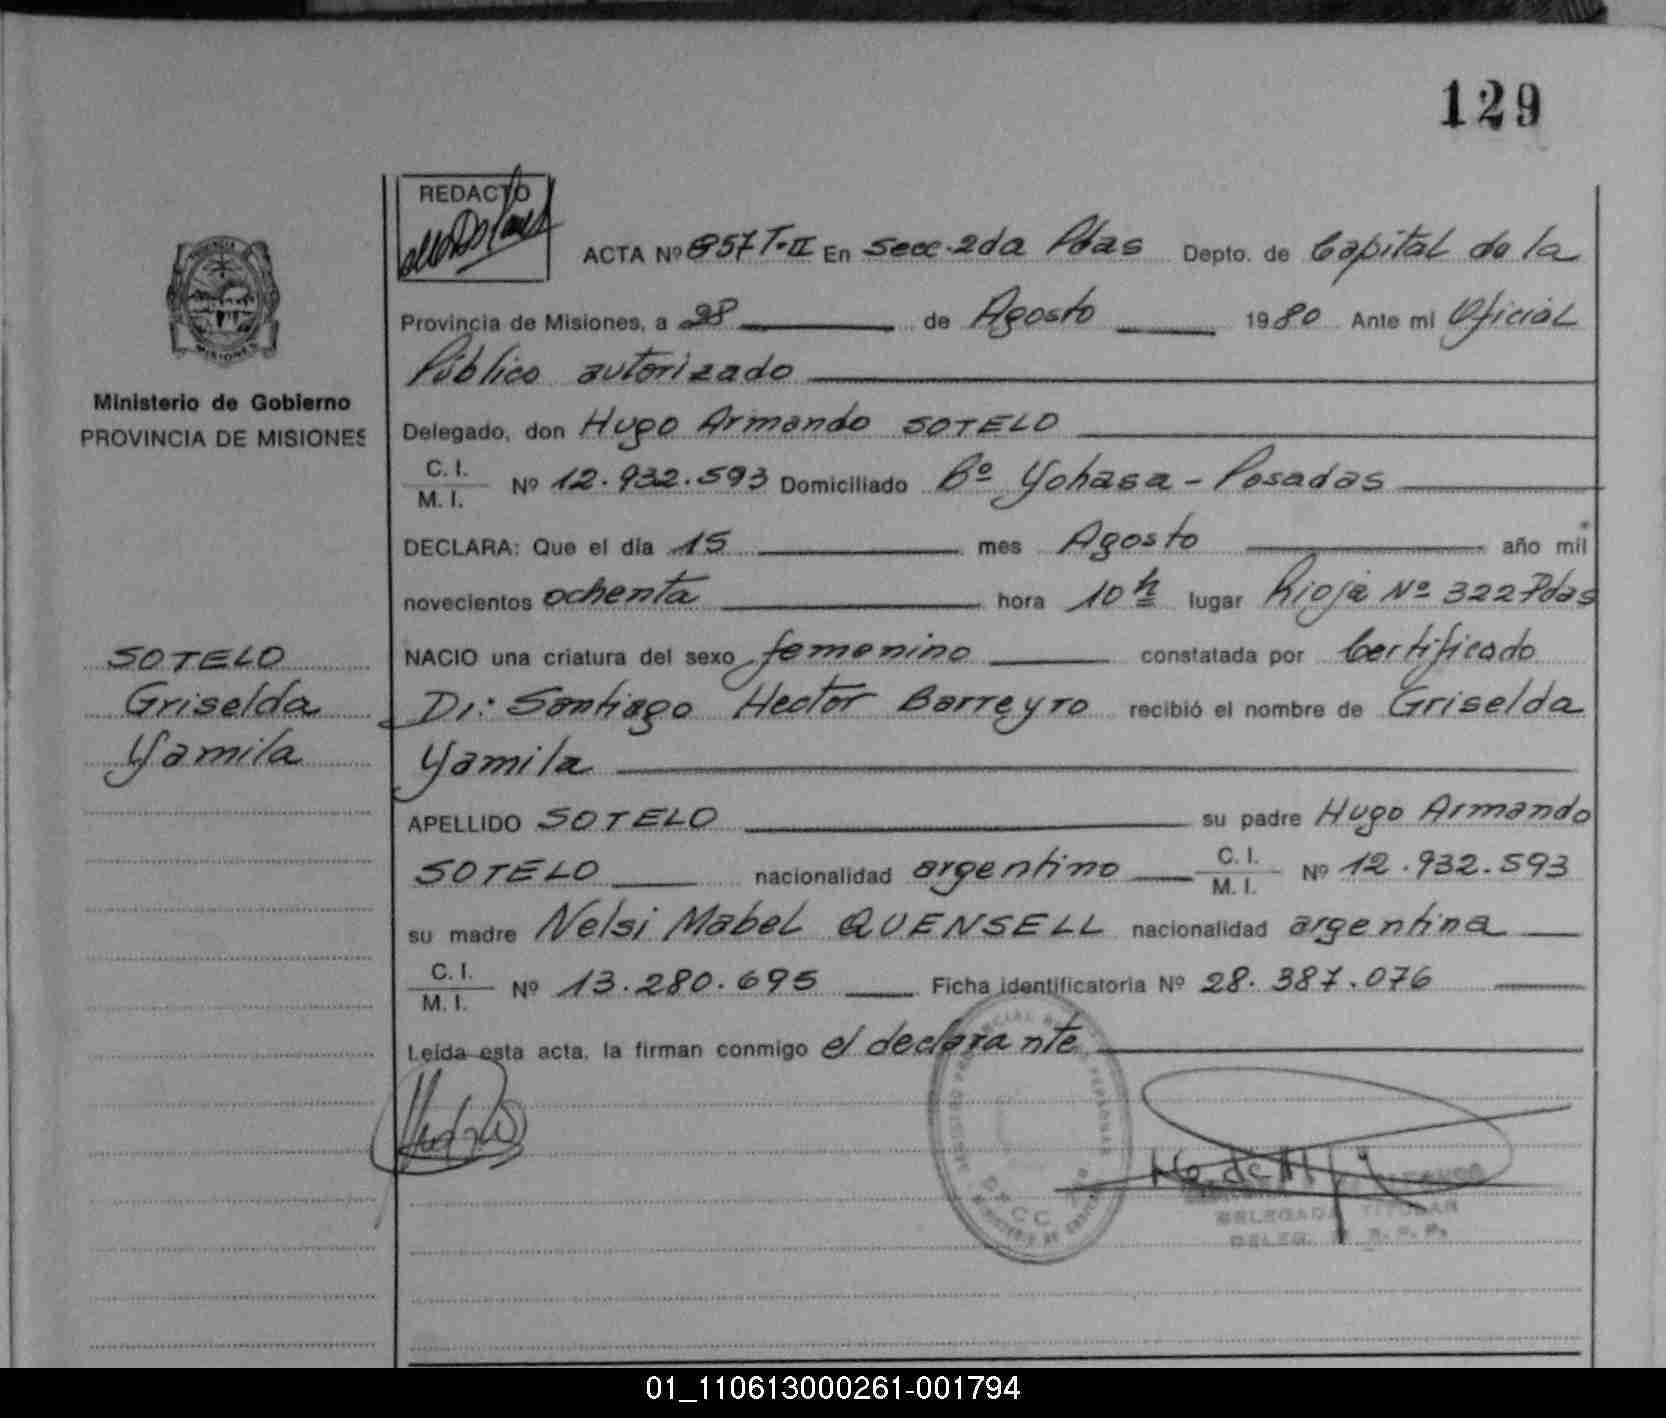 129
REDACTO
ACTA Nº 857 T-II En Secc. 2da Pdas Depto. de Capital de la
Provincia de Misiones, a 28 de Agosto 1980 Ante mi Oficial
Público autorizado
Delegado, don Hugo Armando SOTELO
C. I.
M. I. Nº 12.932.593 Domiciliado Bº Yohasa - Posadas
DECLARA: Que el día 15 mes Agosto año mil
novecientos ochenta hora 10 h lugar Rioja Nº 322 Pdas
NACIO una criatura del sexo femenino constatada por Certificado
Dr: Santiago Hector Barreyro recibió el nombre de Griselda
Yamila
APELLIDO SOTELO su padre Hugo Armando
SOTELO nacionalidad argentino C. I. M. I. Nº 12.932.593
su madre Nelsi Mabel QUENSELL nacionalidad argentina
C. I.
M. I. Nº 13.280.695 Ficha identificatoria Nº 28.387.076
Leída esta acta, la firman conmigo el declarante
MISIONES
Ministerio de Gobierno
PROVINCIA DE MISIONES
SOTELO
Griselda
Yamila
DELEGADA TITULAR
01_110613000261-001794